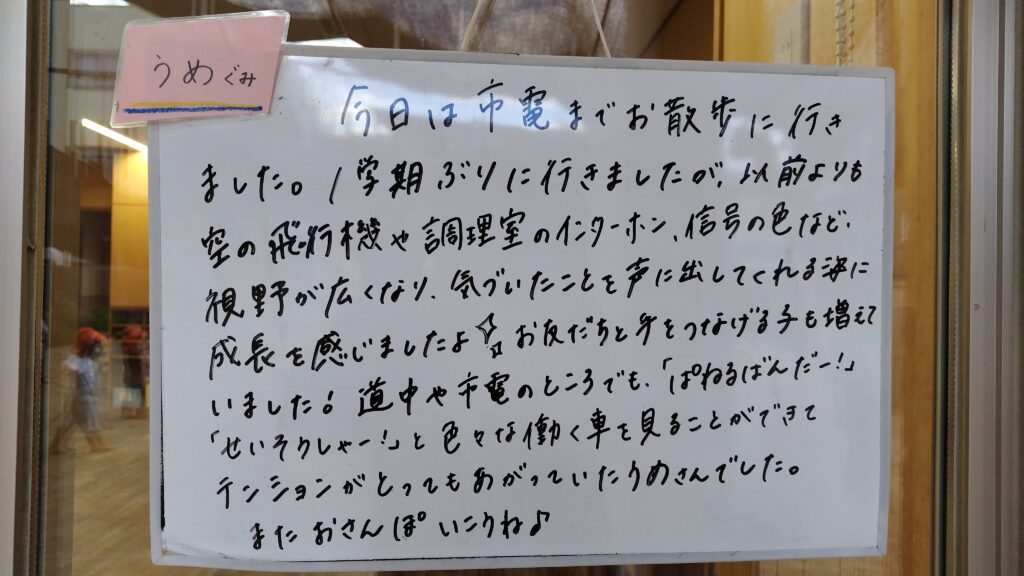 うめぐみ
今日は市電までお散歩に行き
ました。1学期ぶりに行きましたが、以前よりも
空の飛行機や調理室のインターホン、信号の色など、
視野が広くなり、気づいたことを声に出してくれる姿に
成長を感じましたよ✨お友だちと手をつなげる子も増えて
いました！道中や市電のところでも、「ぱねるばんだー！」
「せいそうしゃー！」と色々な働く車を見ることができて
テンションがとってもあがっていたうめさんでした。
またおさんぽいこうね♪